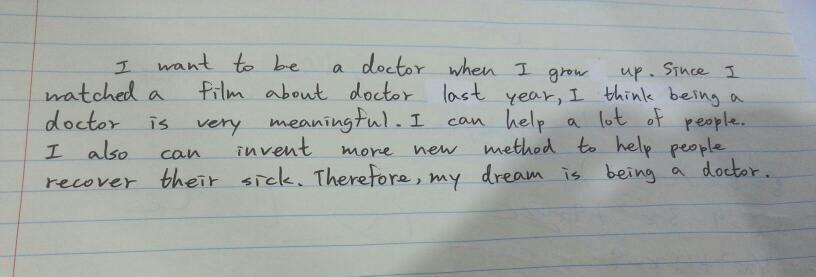 I want to be a doctor when I grow up. Since I
watched a film about doctor last year, I think being a
doctor is very meaningful. I can help a lot of people.
I also can invent more new method to help people
recover their sick. Therefore, my dream is being a doctor.